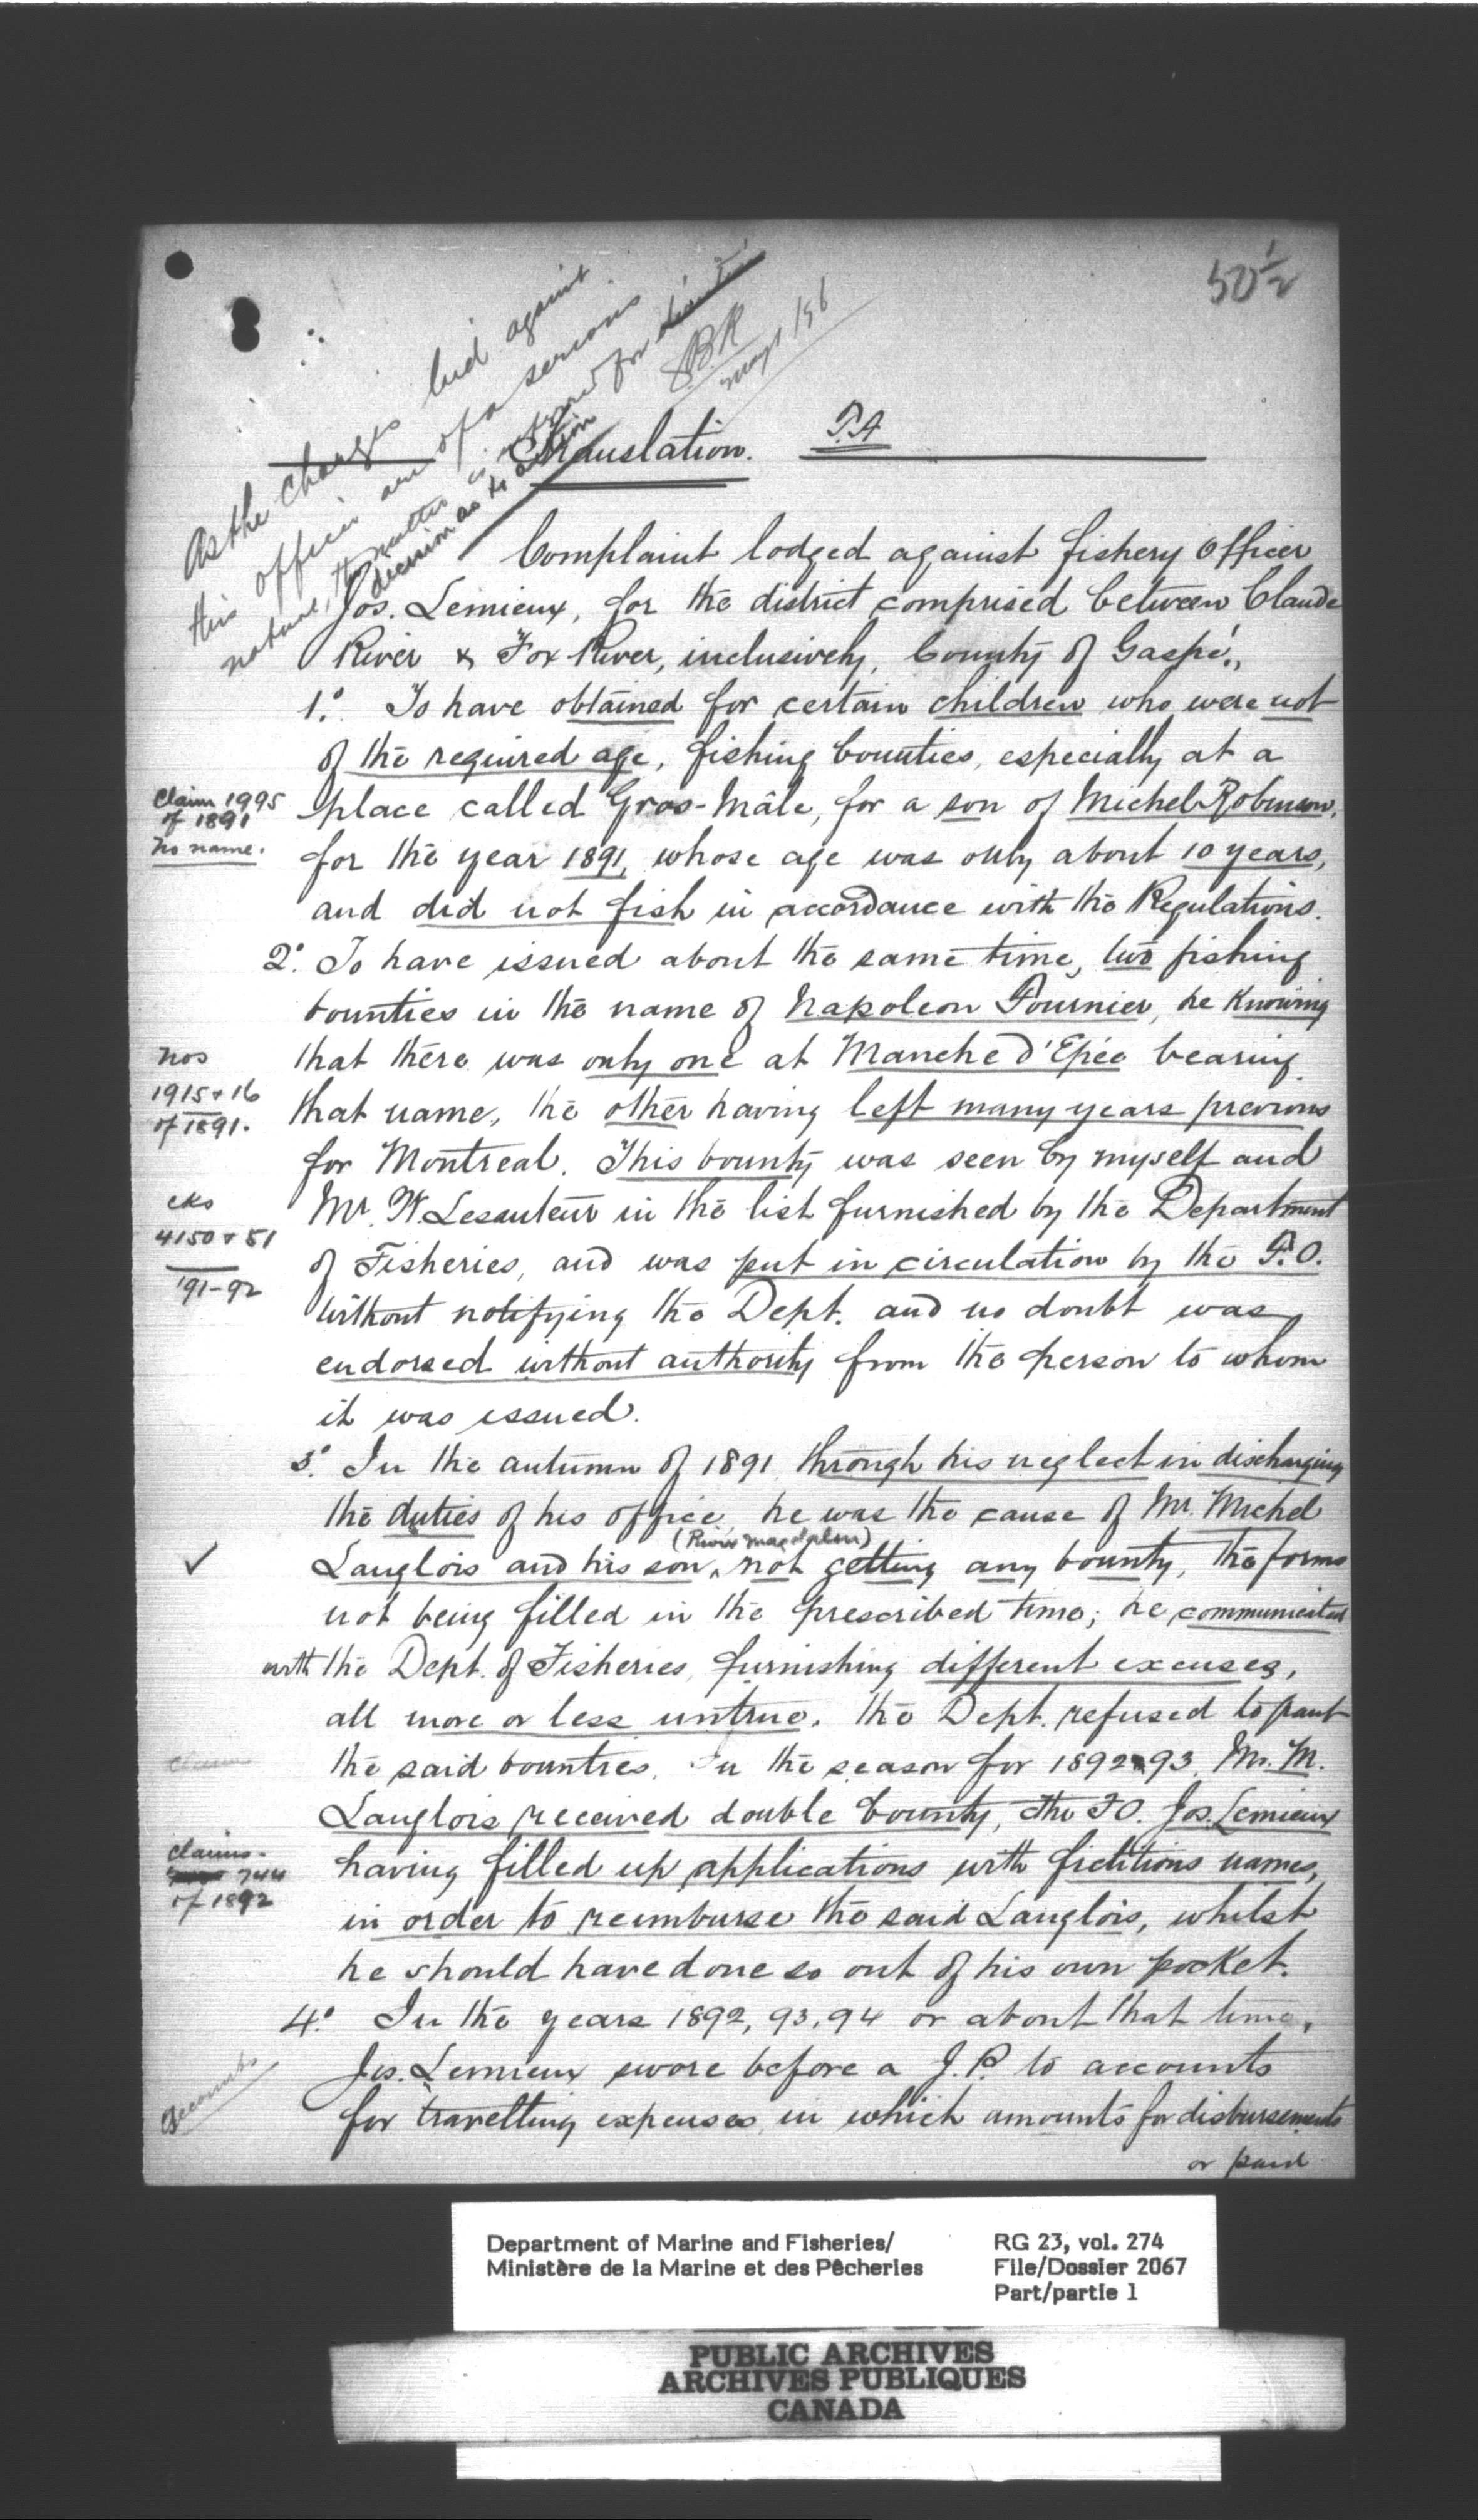 50½
As the charges laid against
this officer are of a serious
nature, the matter is referred for
decision as to action
S.B.K
May 1/96
Translation. F.A
Complaint lodged against fishery Officer
Jos. Lemieux, for the district comprised between Claude
River & Fox River, inclusively, County of Gaspé.,
1.° To have obtained for certain children who were not
of the required age, fishing bounties, especially at a
Claim 1995
of 1891
no name.
place called Gros-Mâle, for a son of Michel Robinson,
for the year 1891, whose age was only about 10 years,
and did not fish in accordance with the Regulations.
2.° To have issued about the same time, two fishing
bounties in the name of Napoleon Fournier, he Knowing
nos
1915 & 16
of 1891.
that there was only one at Manche d'Epée bearing
that name, the other having left many years previous
for Montreal. This bounty was seen by myself and
cks
4150 & 51
'91-92
Mr. W. Lesauteur in the list furnished by the Department
of Fisheries, and was put in circulation by the F.O.
without notifying the Dept. and no doubt was
endorsed without authority from the person to whom
it was issued.
3.° In the autumn of 1891, through his neglect in discharging
the duties of his office he was the cause of Mr. Michel
(River Magdalen)
Langlois and his son, not getting any bounty, the forms
not being filled in the prescribed time; he communicated
with the Dept. of Fisheries, furnishing different excuses,
all more or less untrue. The Dept. refused to grant
claim
the said bounties. In the season for 1892-93, Mr. M.
Langlois received double bounty, the F.O. Jos. Lemieux
claims
744
of 1892
having filled up applications with fictitious names,
in order to reimburse the said Langlois, whilst
he should have done so out of his own pocket.
4.° In the years 1892, 93, 94 or about that time,
Accounts
Jos. Lemieux swore before a J.P. to accounts
for travelling expenses, in which amounts for disbursements
or paid
Department of Marine and Fisheries/
Ministère de la Marine et des Pêcheries
RG 23, vol. 274
File/Dossier 2067
Part/partie 1
PUBLIC ARCHIVES
ARCHIVES PUBLIQUES
CANADA